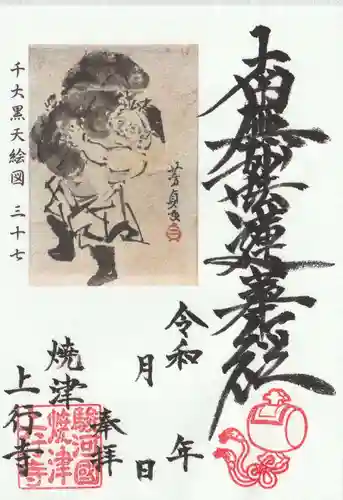 南無妙法蓮華経
令和 年
月 日
奉拝
焼津
上行寺
千大黒天絵図 三十七
芳貞画
駿河國
焼津
上行寺